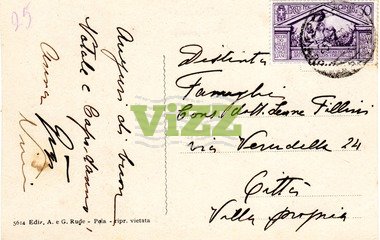 95
Auguri di buon
Natale e Capodanno,
Distinta
Famiglia
Cons. dott. Leone Fillini
via Verudella 24
Città
Villa propria
VIZZ
5614 Ediz. A. e G. Ruge - Pola - ripr. vietata